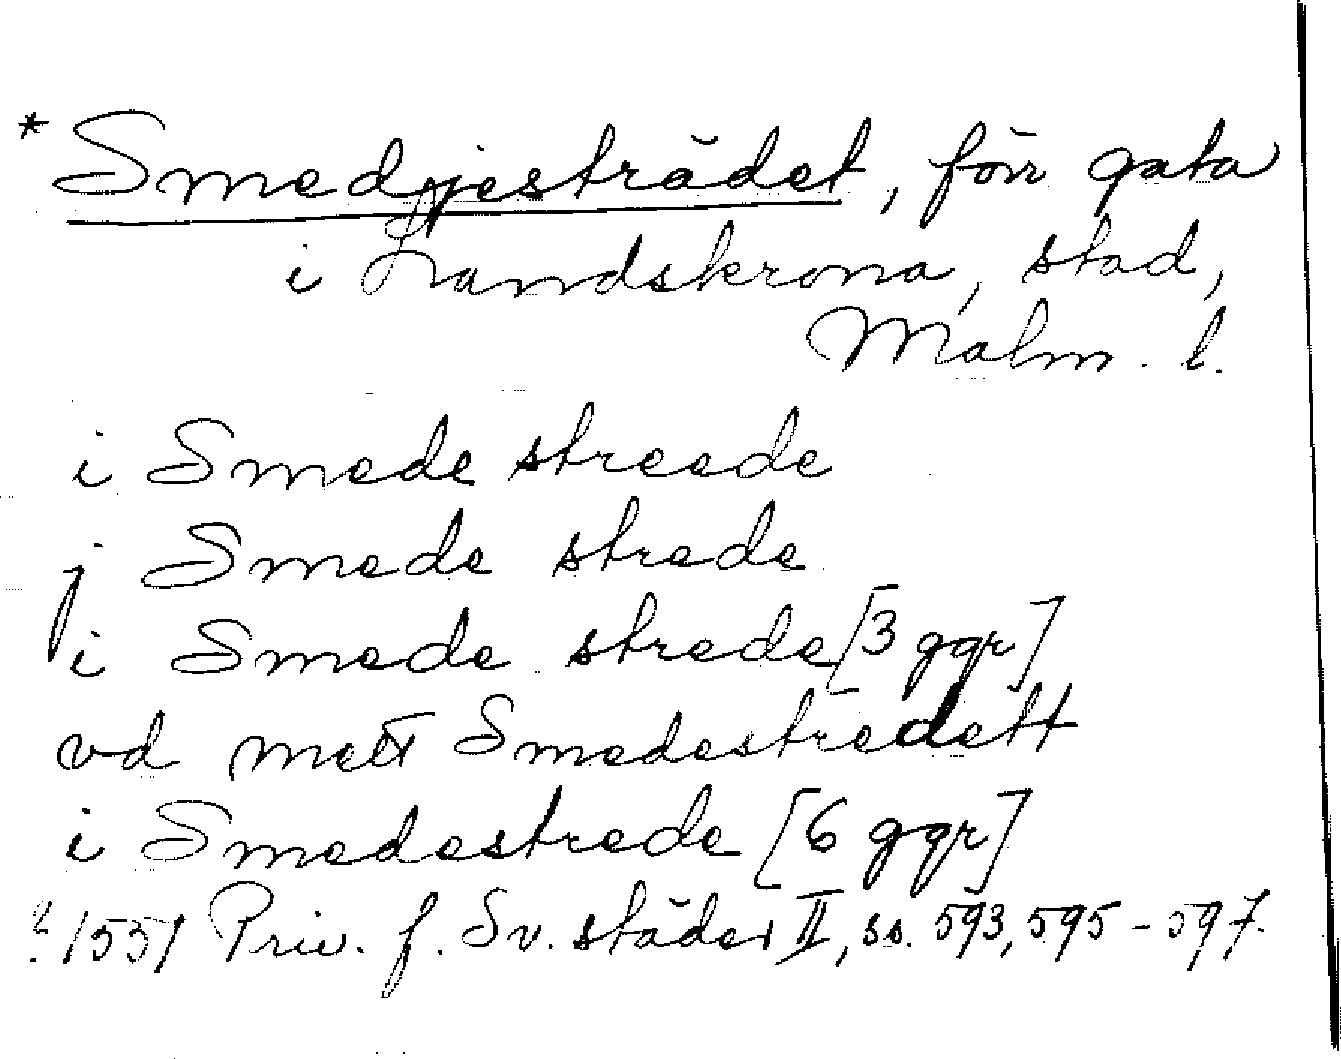 * Smedjesträdet, förr gata
i Landskrona, stad,
Malm. l.
i Smede streede
j Smede strede
i Smede strede [3 ggr]
vd mett Smedestredett
i Smedestrede [6 ggr]
? 1551 Priv. f. Sv. städer II, ss. 593, 595-597.